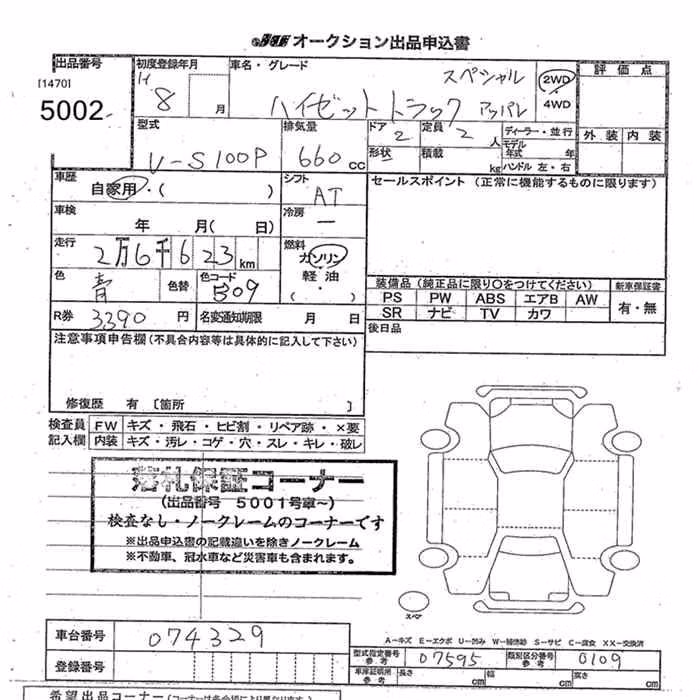 オークション出品申込書
出品番号
[1470]
5002
初度登録年月
H 8 月
車名・グレード
スペシャル
ハイゼットトラック
2WD
4WD
評価点
外装 内装
型式
V-S100P
排気量
660 cc
ドア 2
定員 2 人
形状
積載 kg
ディーラー・並行
モデル年式 年
ハンドル 左・右
車歴
自家用・( )
シフト
AT
セールスポイント(正常に機能するものに限ります)
車検
年 月( 日)
冷房
ー
走行
2万6千623km
燃料
ガソリン
軽油
・
( )
色
青
色替
色コード
B09
装備品(純正品に限り〇をつけてください)
新車保証書
PS PW ABS エアB AW
SR ナビ TV カワ
有・無
R券 3390 円
名変通知期限 月 日
後日品
注意事項申告欄(不具合内容等は具体的に記入して下さい)
修復歴 有 [箇所 ]
検査員 FW キズ・飛石・ヒビ割・リペア跡・×要
記入欄 内装 キズ・汚レ・コゲ・穴・スレ・キレ・破レ
落札保証コーナー
(出品番号 5001号車~)
検査なし・ノークレームのコーナーです
※出品申込書の記載違いを除きノークレーム
※不動車、冠水車など災害車も含まれます。
スペア
A-キズ E-エクボ U-凹み W-補修跡 S-サビ C-腐食 XX-交換済
車台番号 074329
登録番号
型式指定番号
参考
07595
類別区分番号
参考
0109
車庫証明所
参考
長さ cm 幅 cm 高さ cm
希望出品コーナー